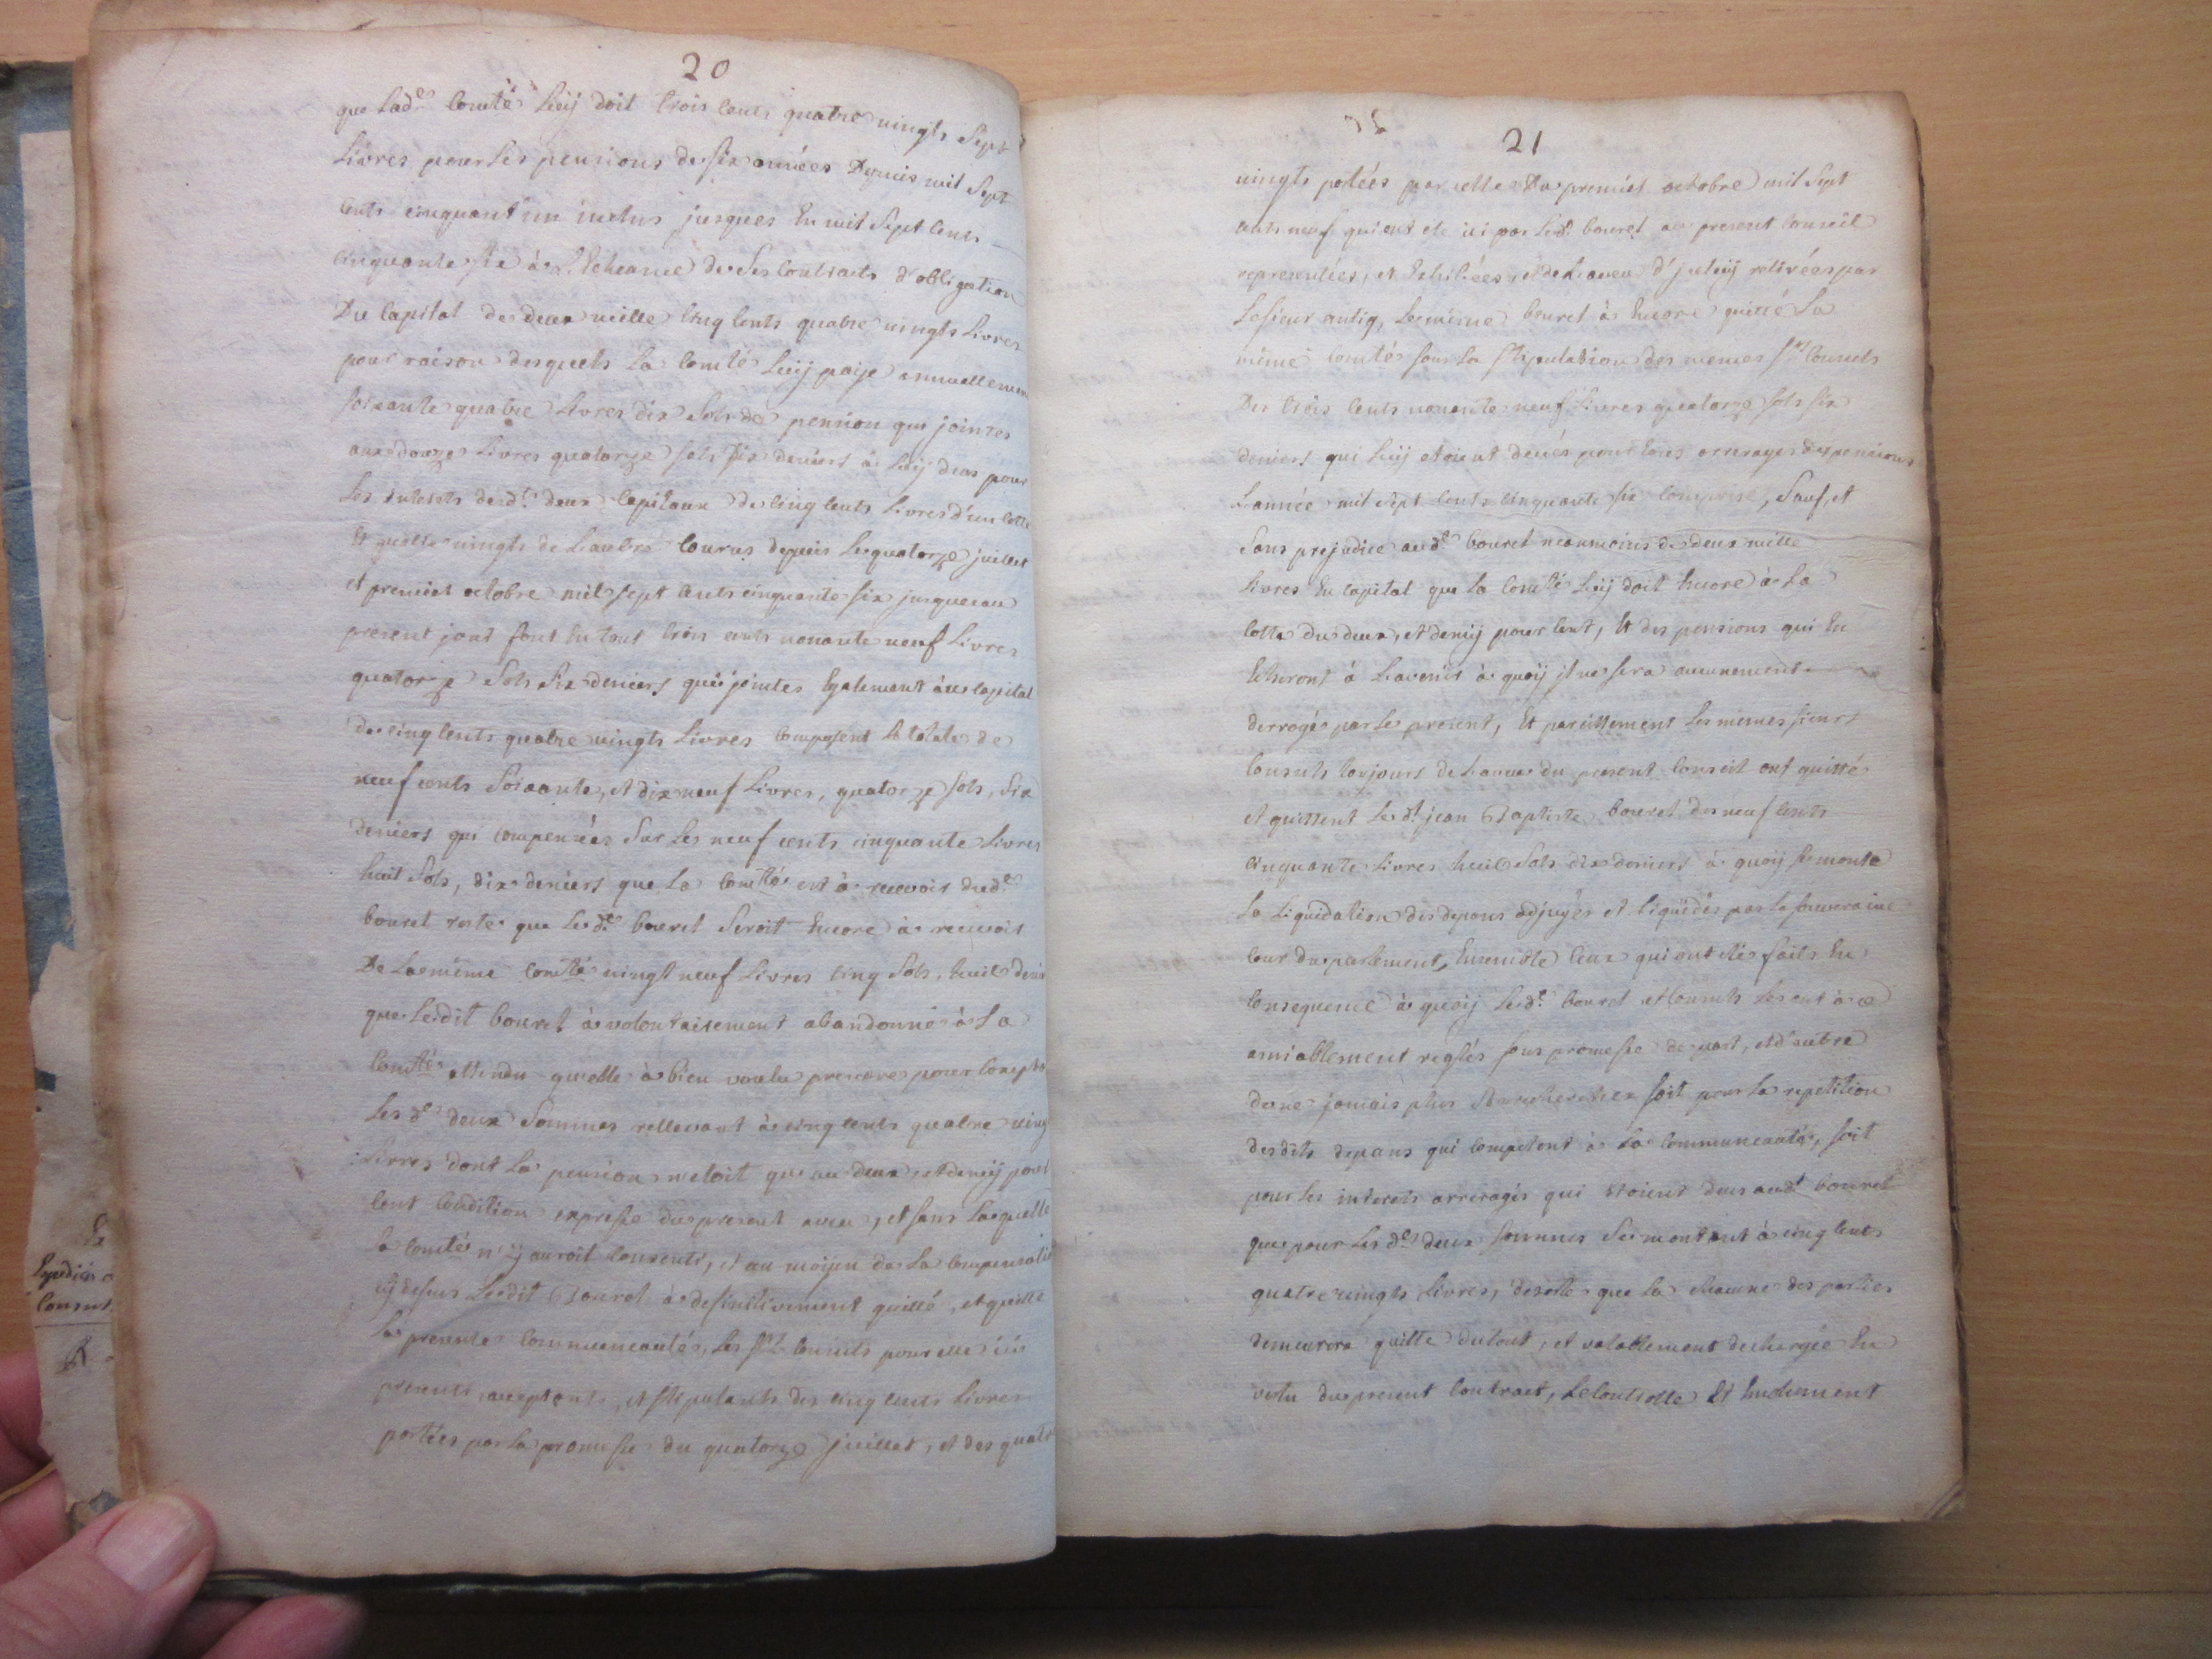 20
que lad.e Com.té luij doit trois cents quatre vingts Sept
Livres pour les pensions de six années Depuis mil Sept
cents cinquant'un inclus jusques En mil Sept cents
cinquante six à L'Echeance de Ses Contracts d'obligation
Du Capital de deux mille Cinq Cents quatre vingts Livres
pour raison desquels la Com.té Luij paije annuellement
soixante quatre Livres dix Sols de pension qui jointes
aux douze Livres quatorze sols six deniers à Luij deus pour
Les interets desd.ts deux Capitaux de Cinq Cents Livres d'un Cotté
Et quatre vingts de L'autre Courus depuis Le quatorze juillet
et premier octobre mil sept cents cinquante six jusques au
present jour font En tout trois cents nonante neuf Livres
quatorze Sols Six deniers qui jointes Egalement au Capital
de Cinq Cents quatre vingts Livres Composent Le totale de
neuf cents Soixante, et dix neuf Livres, quatorze sols, Six
deniers qui compensées Sur Les neuf cents cinquante Livres
huit Sols, dix deniers que La Com.té est à recevoir dud.t
bouret reste que Led.t bouret Seroit Encore à recevoir
De La même Com.té vingt neuf Livres Cinq Sols, huit deniers
que Ledit bouret à volontairement abandonné à La
Com.té attendu qu'elle à bien voulu prendre pour Compte
Les d.es deux Sommes rellevant à cinq cents quatre vingts
Livres dont La pension n'etoit que au deux et demij pour
Cent Condition expresse du present aveu, et sans Laquelle
La Com.té n'ij auroit Consenti, et au moijen de La Compensation
cij dessus Ledit Bouret à definitivement quitté, et quitte
La presente Communeauté, Les s.rs Consuls pour elle ici
presents acceptants, et stipulants des cinq cents Livres
portées par La promesse du quatorze juillet, et des quatre
21
vingts portées par celle Du premier octobre mil Sept
cents neuf qui ont ete ici par Led.t bouret au present Conseil
representées, et Exhibées, et de L'aveu d'jceluij retirées par
Le sieur antiq, Le même bouret à Encore quitté La
même Com.té sous La stipulation des memes s.rs Consuls
Des trois Cents nonante neuf Livres quatorze sols six
deniers qui Luij etoient deues pour Les arrerages des pensions
L'année mil Sept cents cinquante six Comprise, Sauf, et
Sans prejudice aud.t bouret neanmoins de deux mille
Livres En Capital que La Com.té Luij doit Encore à La
Cotte du deux, et demij pour Cent, Et des pensions qui En
Echeront à L'avenir à quoij jl ne sera aucunement
derrogé par Le present, Et pareillement Les mêmes sieurs
Consuls toujours de L'aveu du present Conseil ont quitté
et quittent Led.t jean Baptiste bouret des neuf Cents
Cinquante Livres huit Sols dix deniers à quoij se monte
La Liquidation des depans adjugés et Liquidés par La Souveraine
Cour du parlement, Ensemble Ceux qui ont étés faits En
Consequence à quoij Led.t bouret et Consuls Les ont à
amiablement reglés sous promesse de part, et d'autre
de ne jamais plus S'en rechercher soit pour La repetition
desdits depans qui Competent à La Communeauté, soit
pour Les interets arreragés qui etoient deus aud.t bouret
que pour Les d.es deux Sommes Se montant à cinq cents
quatre vingts Livres, desorte que La Chacune des parties
demeurera quitte du tout, et valablement dechargée En
vertu du present Contract, Le Controlle Et Endument